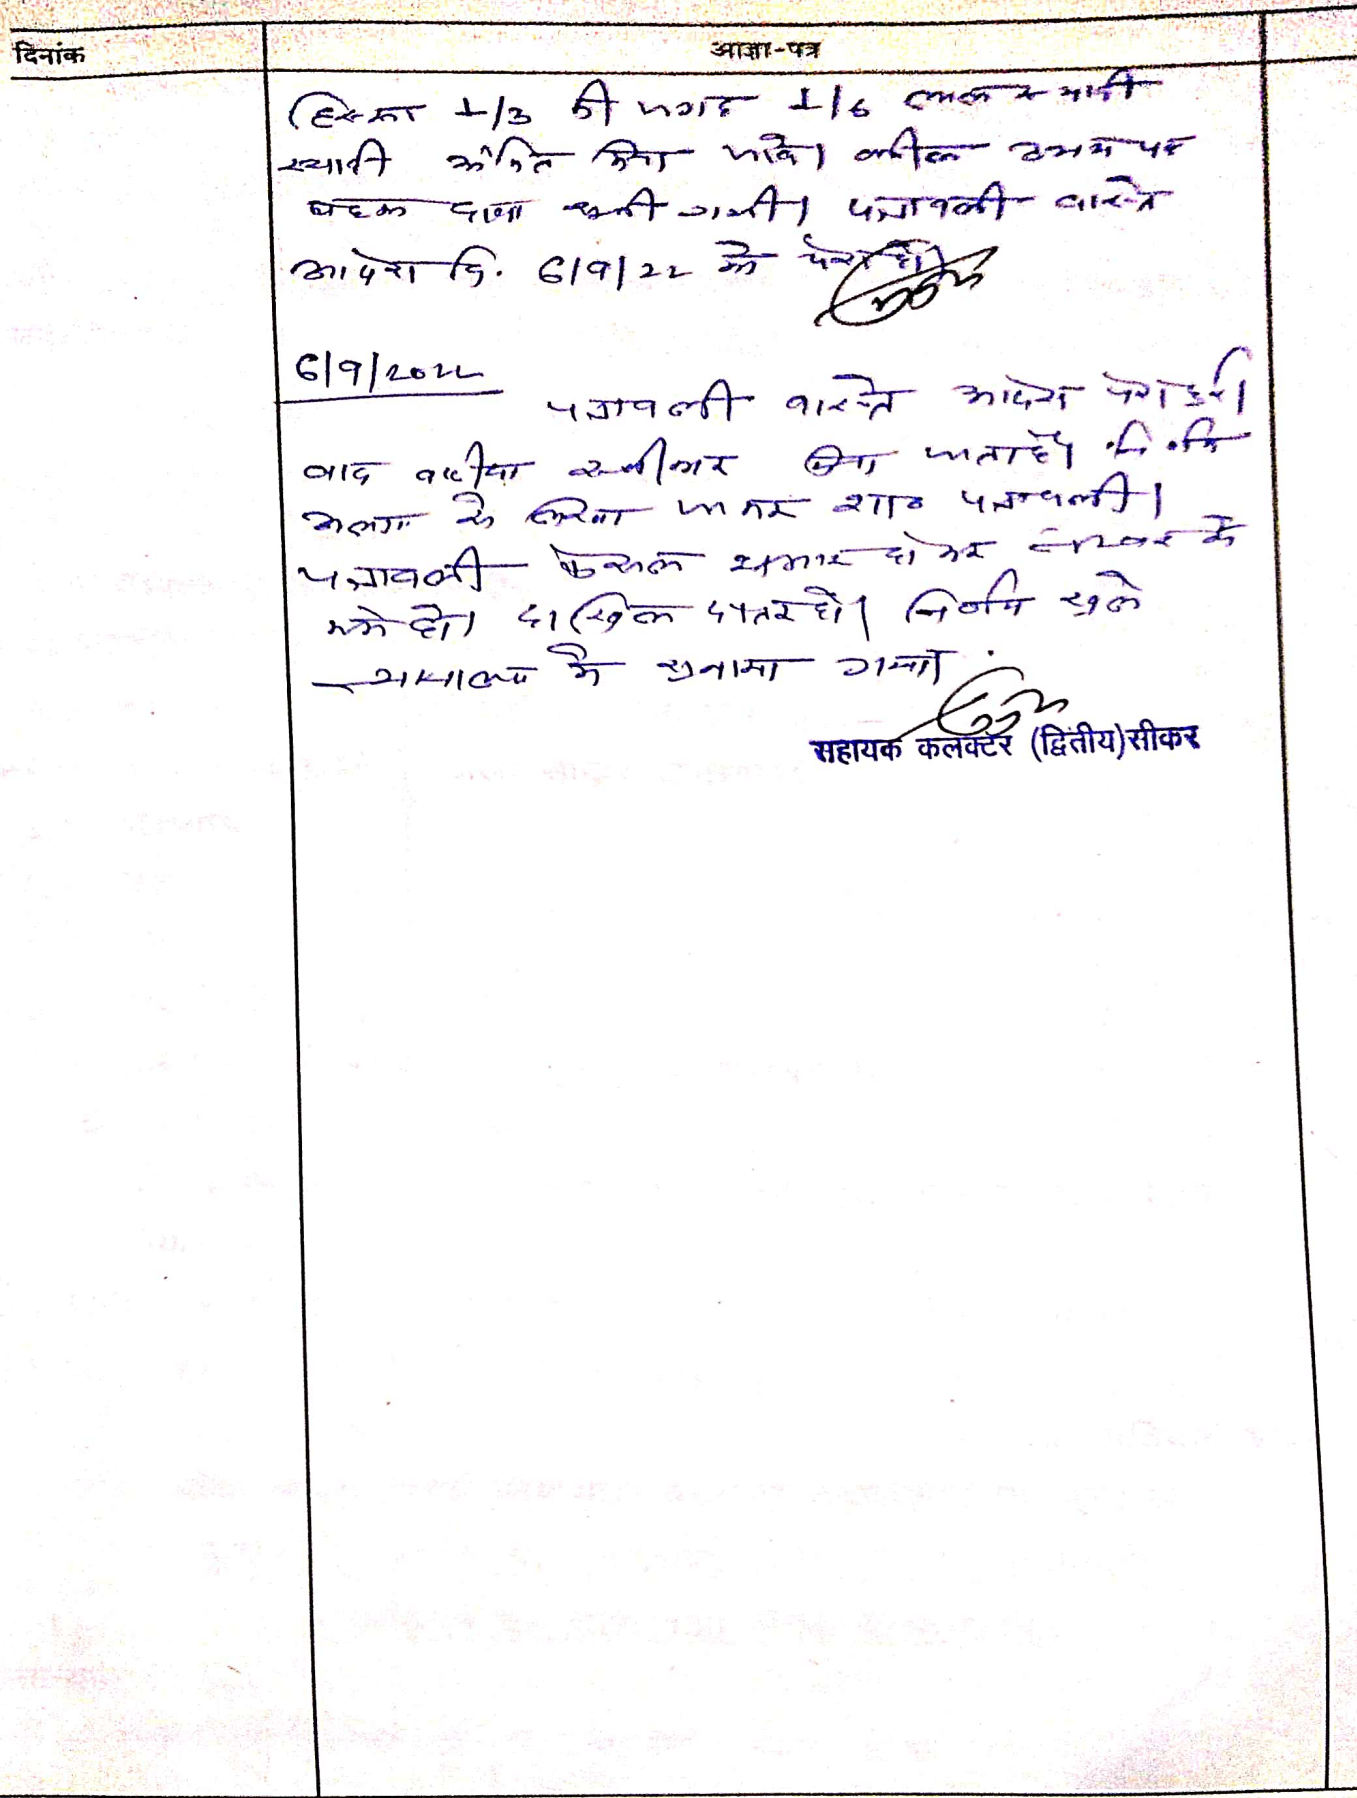 दिनांक
आज्ञा-पत्र
हिस्सा 1/3 की जगह 1/6
अंकित किया जावे। वकील उभय पक्ष
बहस सुनी गयी। पत्रावली वास्ते
आदेश दि. 6/9/22 को पेश हो।
6/9/2022
पत्रावली वास्ते आदेश पेश हुई।
वाद वादीया स्वीकार किया जाता है।
अलग से लिखा जाकर शा० पत्रावली।
पत्रावली फैसल शुमार होकर नम्बर से
कम हो। दाखिल दफ्तर हो। निर्णय खुले
न्यायालय में सुनाया गया।
सहायक कलक्टर (द्वितीय)सीकर